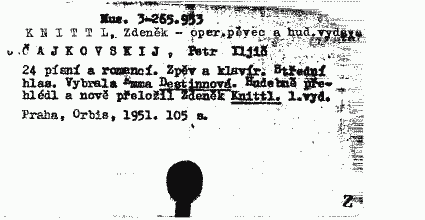 Mus. 3-265.953
K N I T T L, Zdeněk - oper.pěvec a hud.vydav.
Č A J K O V S K I J , Petr Iljič
24 písní a romancí. Zpěv a klavír. Střední
hlas. Vybrala Emma Destinnová. Hudebně pře-
hlédl a nově přeložil Zdeněk Knittl. 1.vyd.
Praha, Orbis, 1951. 105 s.
Z